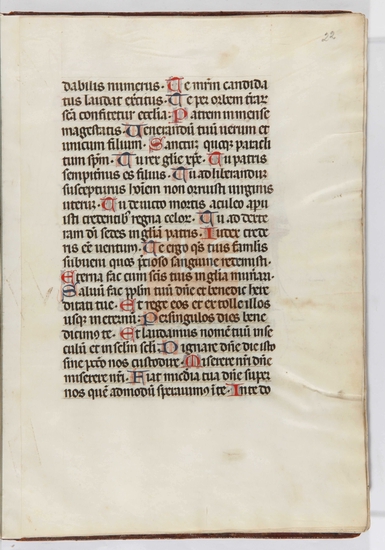 22
dabilis numerus. Te mr̄m candida
tus laudat exc̄itus. Te per orbem t̄rar
sc̄a confitetur ecclīa. Patrem immense
magestatis. Uenerandū tuū uerum et
unicum filium. Sanctū quoqꝫ paracli
tum sp̄m. Tu rex glīe xp̄e. Tu patris
sempitnus es filius. Tu ad liberandū
suscepturus hoīem non orruisti uirginis
uterū. Tu deuicto mortis aculeo apu
isti credentibꝰ regna celor. Tu ad dexte
ram dī sedes in glīa patris. Iudex crede
ris eē uenturus. Te ergo qs̄ tuis famlis
subueni quos p̄cioso sanguine redemisti.
Eterna fac cum scīs tuis in glīa mūari.
Saluū fac pplm̄ tuū dn̄e et benedic here
ditati tue. Et rege eos et extolle illos
usqꝫ in eternū. Per singulos dies bene
dicimꝰ te. Et laudamus nomē tuū in se
culū et in sclm̄ scli̅. Dignare dn̄e die isto
sine pccō nos custodire. Miserere nr̄i dn̄e
miserere nr̄i. Fiat mīcdia tua dn̄e super
nos quē admodū sperauimꝰ ī te. In te do